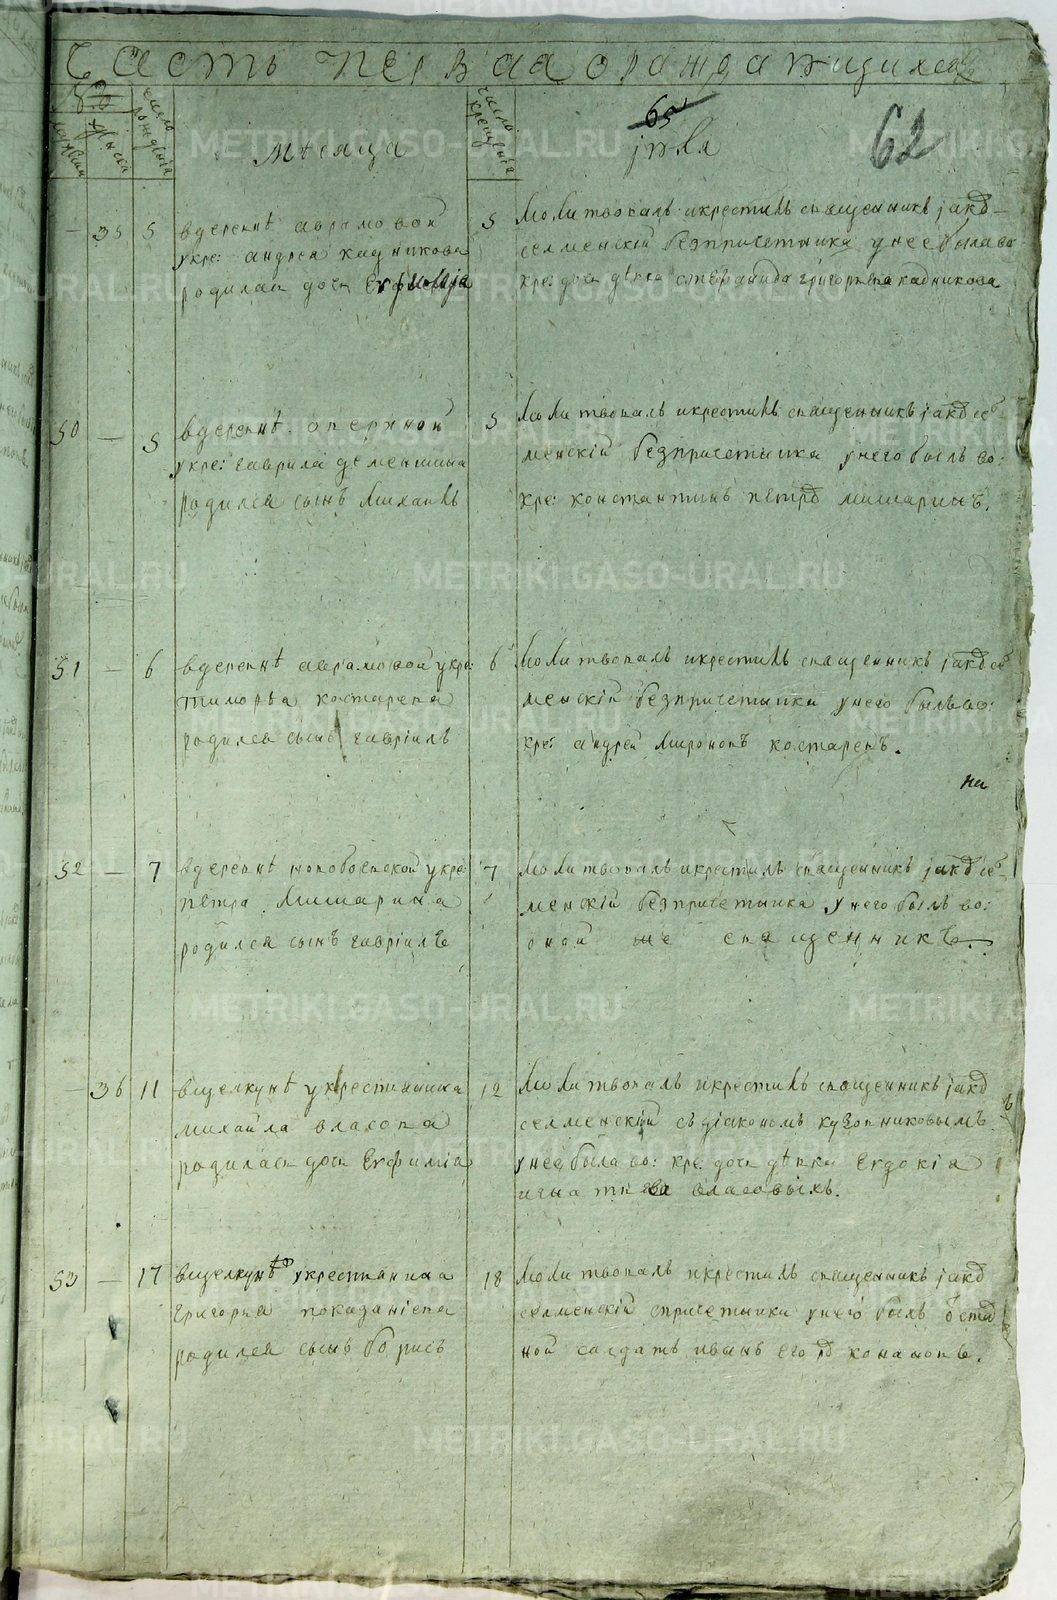 Часть первая ораждающихся
65
62
№
мужеска
женска
число рождения
Мѣсяца
число крещенія
іюля
— 35 5 вдеревнѣ аврамовой
укре: андрея кадникова
родилась дочь Евфимія
5 Молитвовалъ икрестилъ священникъ іаковъ
селменскій безпричетника унее была во
кре: дочь дѣвка стефанида григорьева кадникова
50 — 5 вдеревнѣ
укре: гаврила деменшина
родился сынъ Михаилъ
5 Молитвовалъ икрестилъ священникъ іаковъ се
менскій безпричетника унего былъ во:
кре: константинъ петровъ мишаринъ.
51 — 6 вдеревнѣ аврамовой укре:
тимофѣа костарева
родился сынъ гавріилъ
6 Молитвовалъ икрестилъ священникъ іаковъ се
менскій безпричетника унего былъ во:
кре: андрей Мироновъ костаревъ.
на
52 — 7 вдеревнѣ новобоевской укре:
петра Мишарина
родился сынъ гавріилъ
7 Молитвовалъ икрестилъ священникъ іаковъ се
менскій безпричетника унего былъ во:
оной же священникъ.
— 36 11 вщелкунѣ укрестьянина
михайла власова
родилась дочь Евфимія
12 Молитвовалъ икрестилъ священникъ іаковъ
селменскій съ діакономъ кузовниковымъ
унее была во: кре: дочь дѣвка Евдокія
игнатиева власовыхъ.
53 — 17 вщелкунѣ укрестьянина
григорья
родился сынъ борисъ
18 Молитвовалъ икрестилъ священникъ іаковъ
селменскій спричетники унего былъ
ной салдатъ иванъ
METRIKI.GASO-URAL.RU